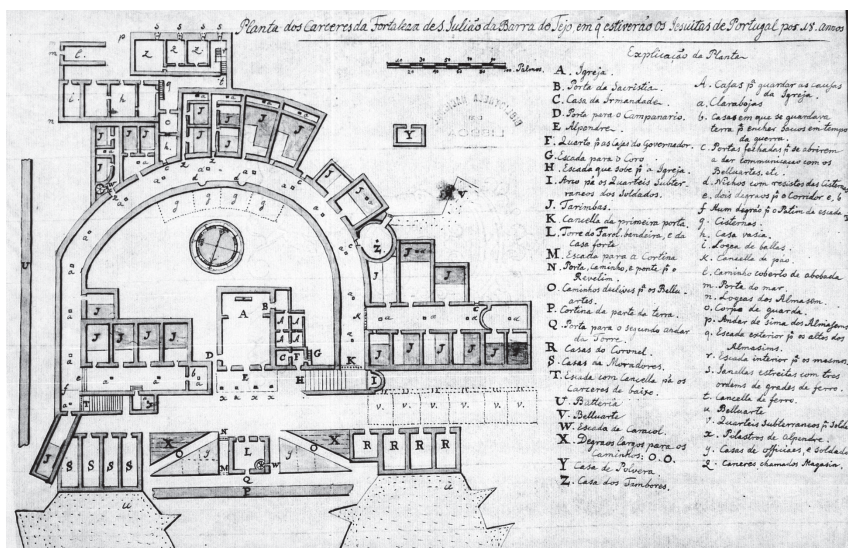 Planta dos Carceres da Fortaleza de S. Julião da Barra do Tejo, em q̃ estiverão os Jesuitas de Portugal por 18. annos
Explicação da Planta
A. Igreja.
B. Porta da Sacristia
C. Casa da Irmandade.
D. Porta para o Campanario.
E. Alpendre.
F. Quarto pª as Lojes do Governador.
G. Escada para o Coro
H. Escada que sobe pª a Igreja.
I. Arco pª os Quarteis Subter-
raneos dos Soldados.
J. Tarimbas.
K. Cancella da primeira porta.
L. Torre do Farol, bandeira, e da
Casa forte
M. Escada para a Cortina
N. Porta, caminho, e ponte pª o
Revelim.
O. Caminhos declives pª os Bellu-
artes.
P. Cortina da parte da terra.
Q. Porta para o segundo andar
da Torre.
R. Casas do Coronel.
S. Casas de Moradores.
T. Escada com Cancella pª os
Carceres de baixo.
U. Batteria
V. Belluarte
W. Escada de Caracol.
X. Degraos largos para os
Caminhos: O. O.
Y Casa de Polvora
Z. Casa dos Tambores.
A. Casas pª guardar as cousas
da Igreja.
a. Clarabojas
b. Casas em que se guardava
terra pª encher sacos em tempo
da guerra.
c. Portas fechadas pª se abrirem
a dar communicação com os
Belluartes, etc.
d. Nichos com resistos das Cisternas
e. dois degraos pª o Corridor e, b
f. Hum degrao pª o Patim da escada
g. Cisternas.
h. Casa vasia.
i. Logea de ballas.
k. Cancella de páo.
l. Caminho coberto de abobada
m. Porta do mar.
n. Logeas dos Almasem.
o. Corpo de guarda.
p. Andar de sima dos Almasems
q. Escada exterior pª os altos dos
Almasims.
r. Escada interior pª os mesmos
s. Janellas estreitas com tres
ordens de grades de ferro.
t. Cancella de ferro.
u. Belluarte
v. Quarteis Subterraneos pª Sold.
x. Pilastros do Alpendre.
y. Casas de officiaes, e soldados
z. Carceres chamados Magasia.